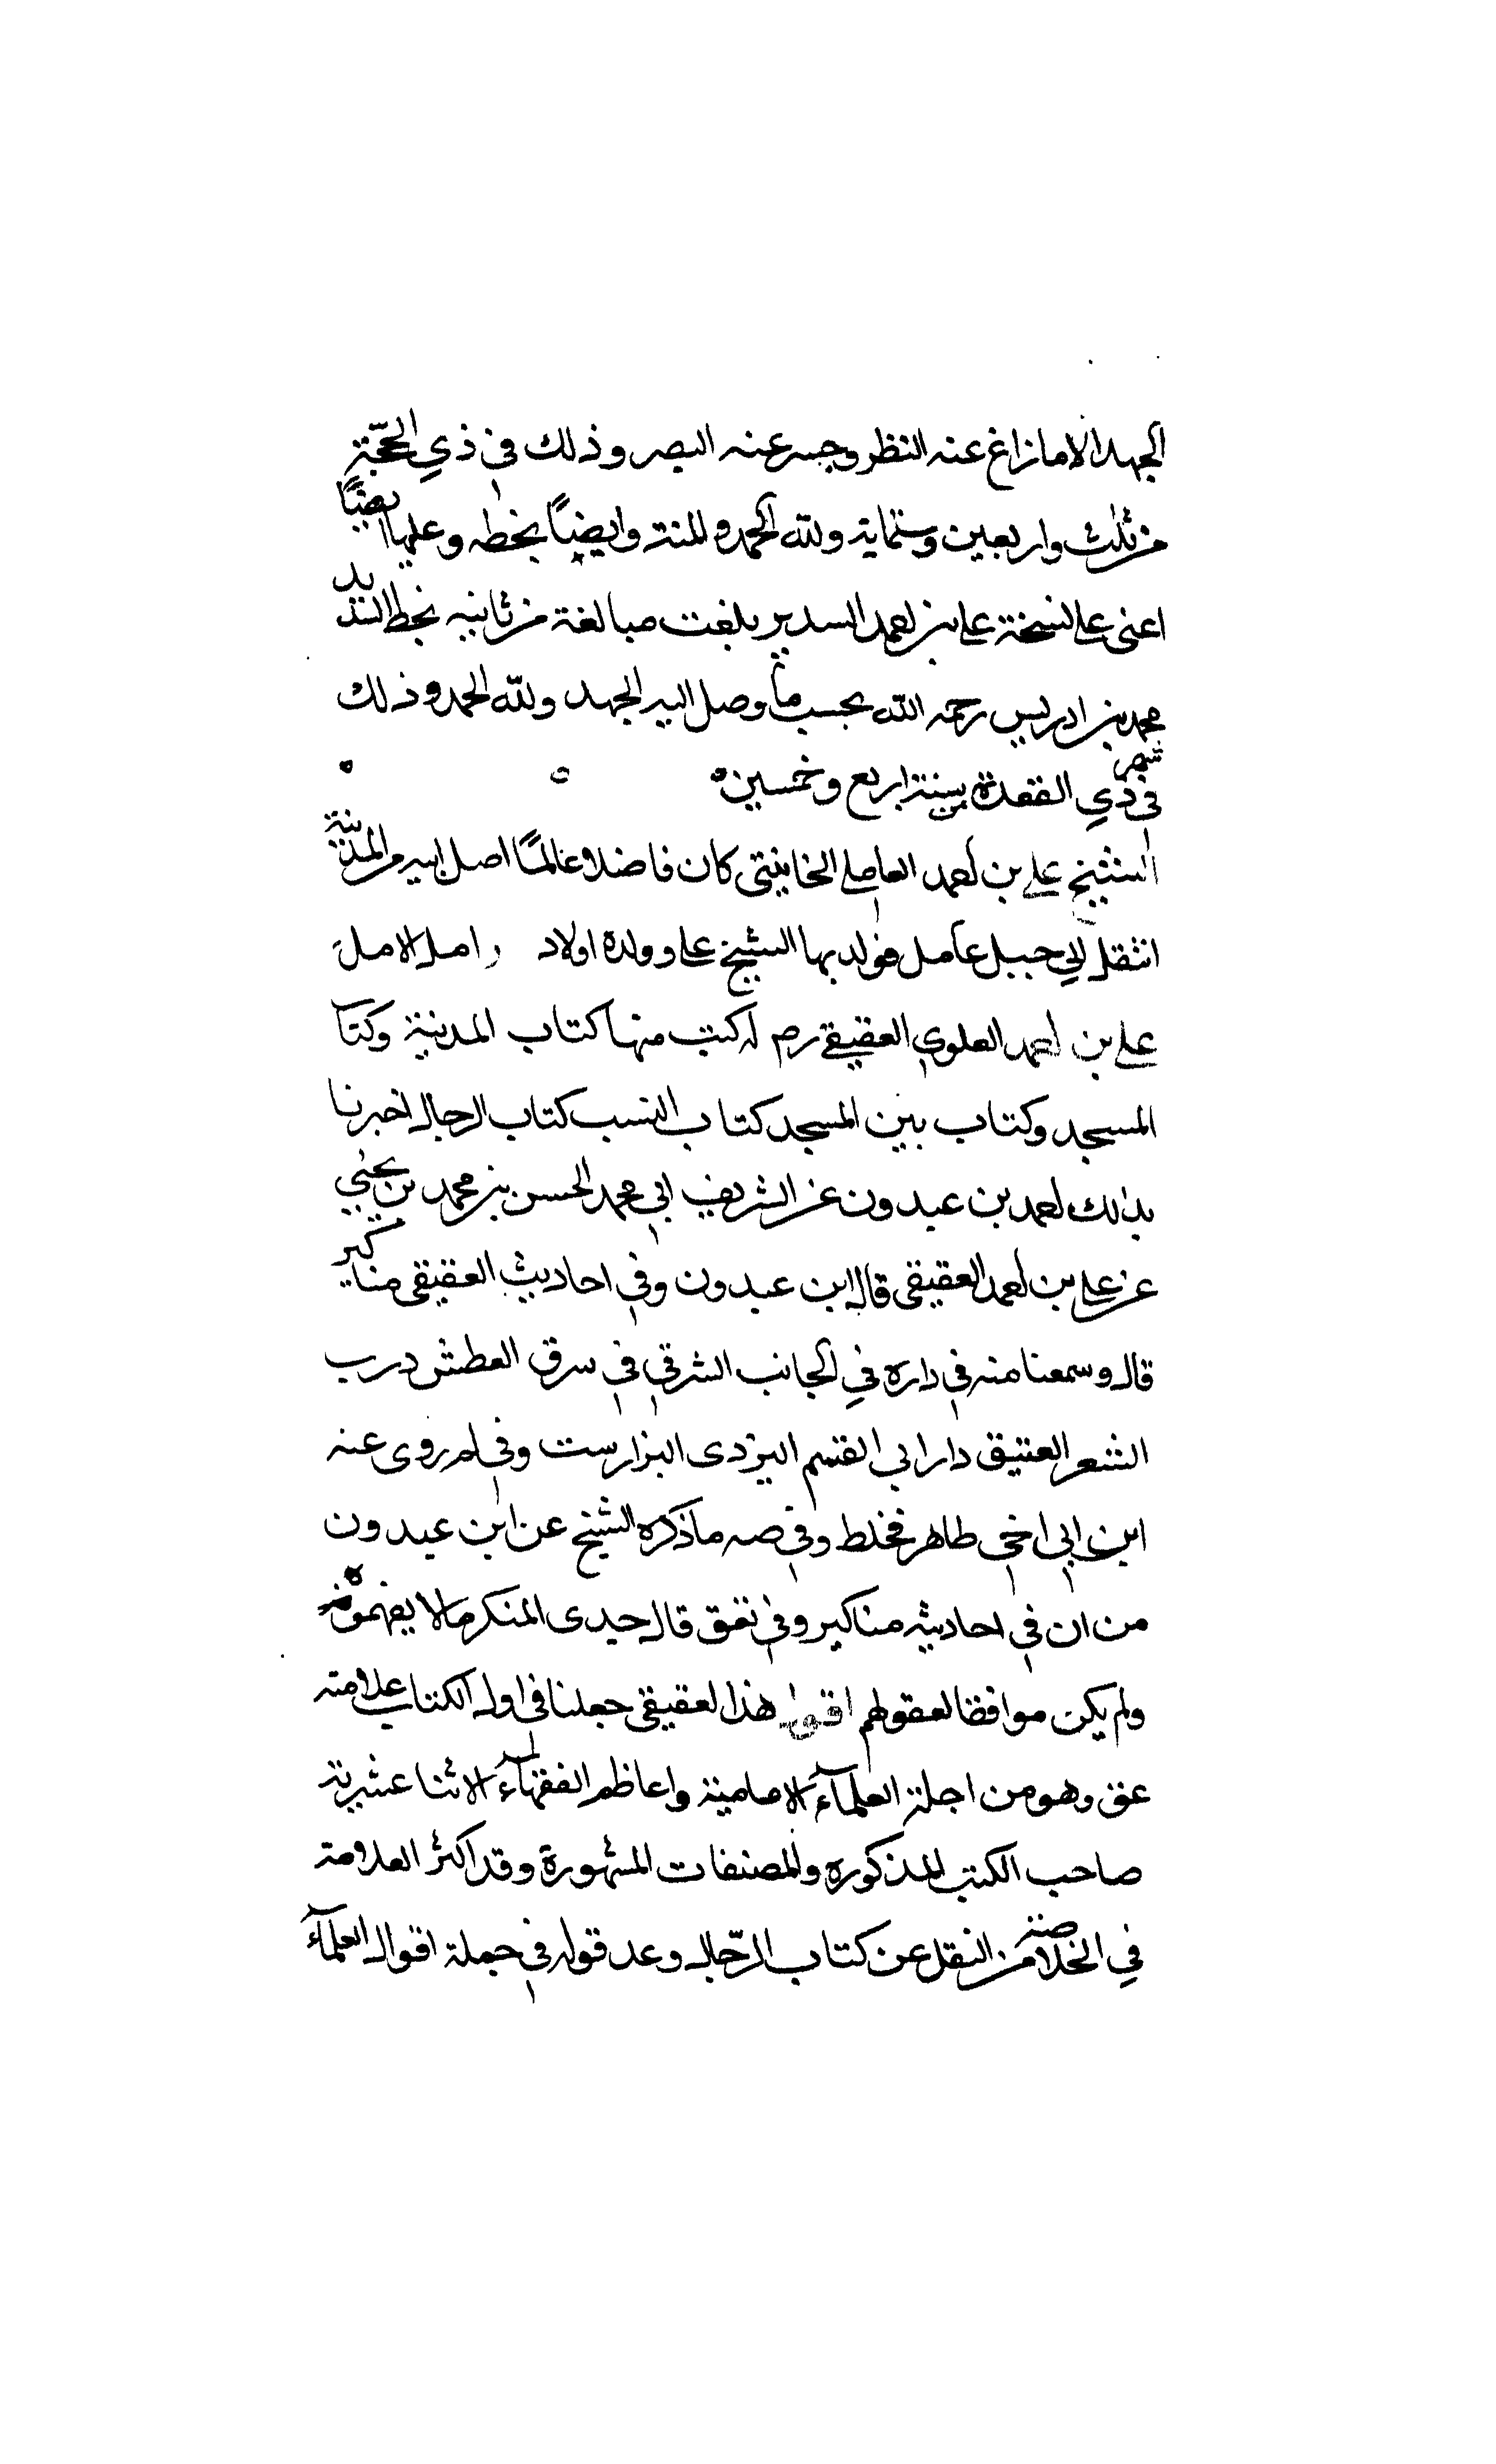 الجهد الا ما زاغ عنه النظر وحسر عنه البصر وذلك في ذي الحجّة
من ثلث واربعين وستماية ولله الحمد والمنة وايضًا بخطه وعليها ايضًا
اعنى على النسخة على بن احمد السديد بلغت مبالغة من ثانيه بخط السديد
محمد بن ادريس رحمه الله بحسب ما وصل اليه الجهد ولله الحمد وذلك
في شهر ذي القعدة سنة اربع وخمسين
الشيخ علي بن احمد العاملي الخانيتى كان فاضلا عالمًا اصل ابيه من المدينة
انتقل الي جبل عامل فولد بها الشيخ على وولده اولاد امل الامل
علي بن احمد العلوي العقيقي رم له كتب منها كتاب المدينة وكتاب
المسجد وكتاب بين المسجد كتاب النسب كتاب الرجال اخبرنا
بذلك احمد بن عبدون عن الشريف ابي محمد الحسن بن محمد بن يحيي
عن علي بن احمد العقيقى قال ابن عبدون وفي احاديث العقيقى مناكير
قال وسمعنا منه في داره في الجانب الشرقي في سرق العطش درب
الشعر العتيق دار ابي القسم اليزدى البزار ست وفي لم روى عنه
ابن ابي اخي طاهر مخلط وفي صه ما ذكره الشيخ عن ابن عبدون
من ان في احاديثه مناكير وفي تعق قال جدى المنكر ما لا يفهمونه
ولم يكن موافقا لعقولهم اقول هذا العقيقى جعلنا في اول الكتاب علامته
عق وهو من اجلة العلمآء الامامية واعاظم الفقهآء الاثنا عشرية
صاحب الكتب المذكورة والمصنفات المشهورة وقد اكثر العلامة
في الخلاصة من النقل عن كتاب الرّجال وعد قوله في جملة اقوال العلمآء